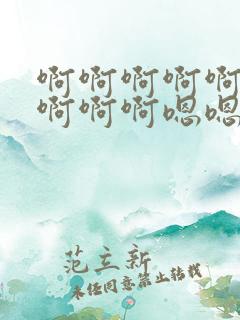 啊啊啊啊啊
啊啊啊嗯嗯
范立新
未经同意禁止转载